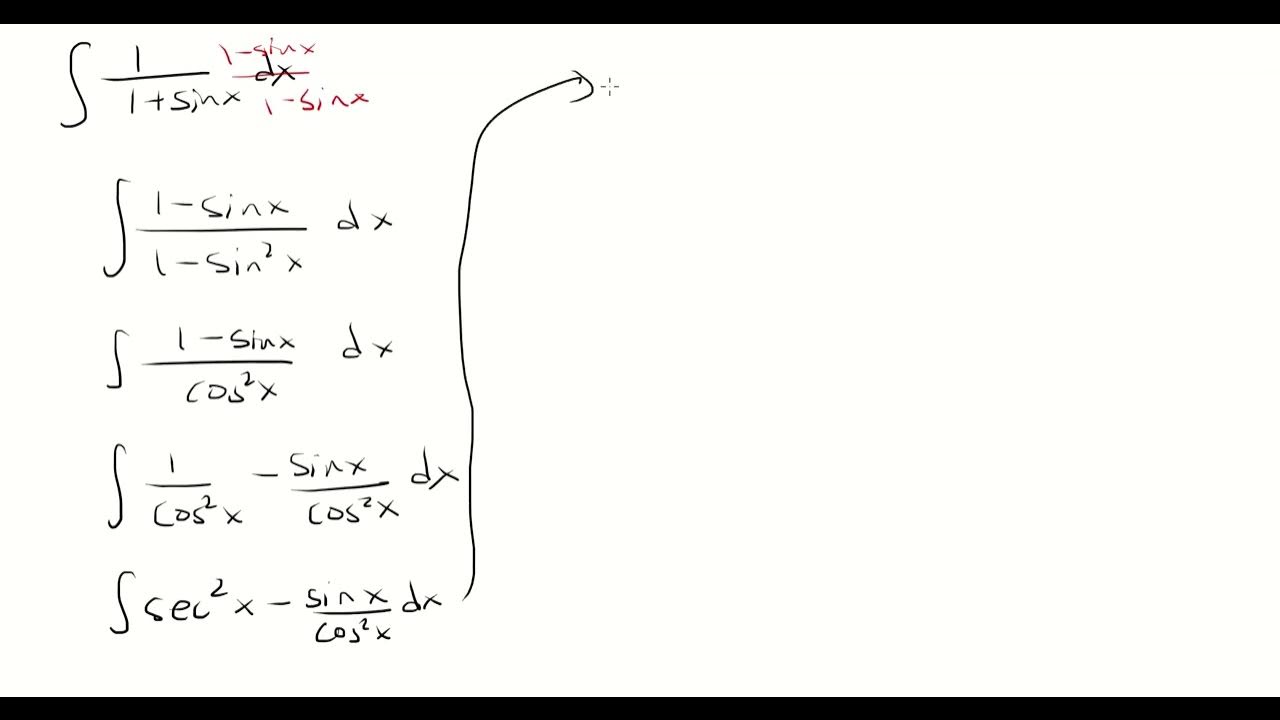 ∫ 1/(1+sinx) dx (1-sinx)/(1-sinx)
∫ (1-sinx)/(1-sin²x) dx
∫ (1-sinx)/(cos²x) dx
∫ 1/(cos²x) - sinx/(cos²x) dx
∫ sec²x - sinx/(cos²x) dx